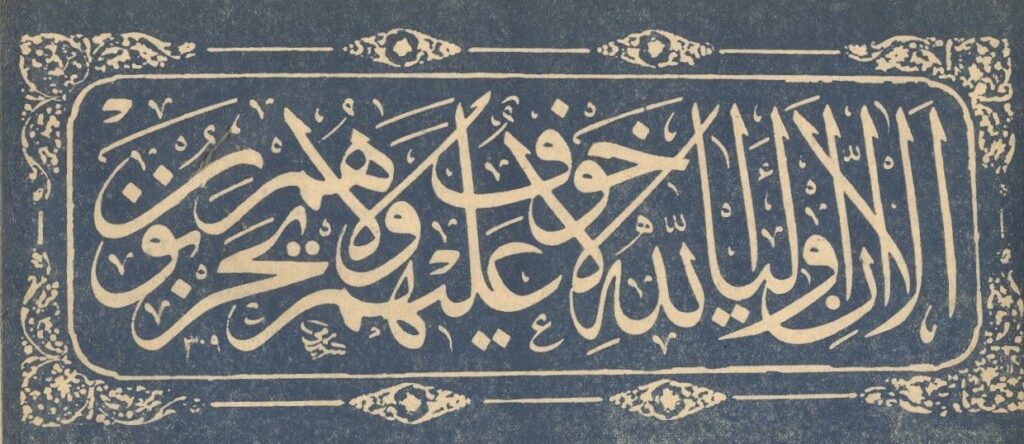 أَلَا إِنَّ أَوْلِيَاءَ اللَّهِ لَا خَوْفٌ عَلَيْهِمْ وَلَا هُمْ يَحْزَنُونَ
٣٠٩